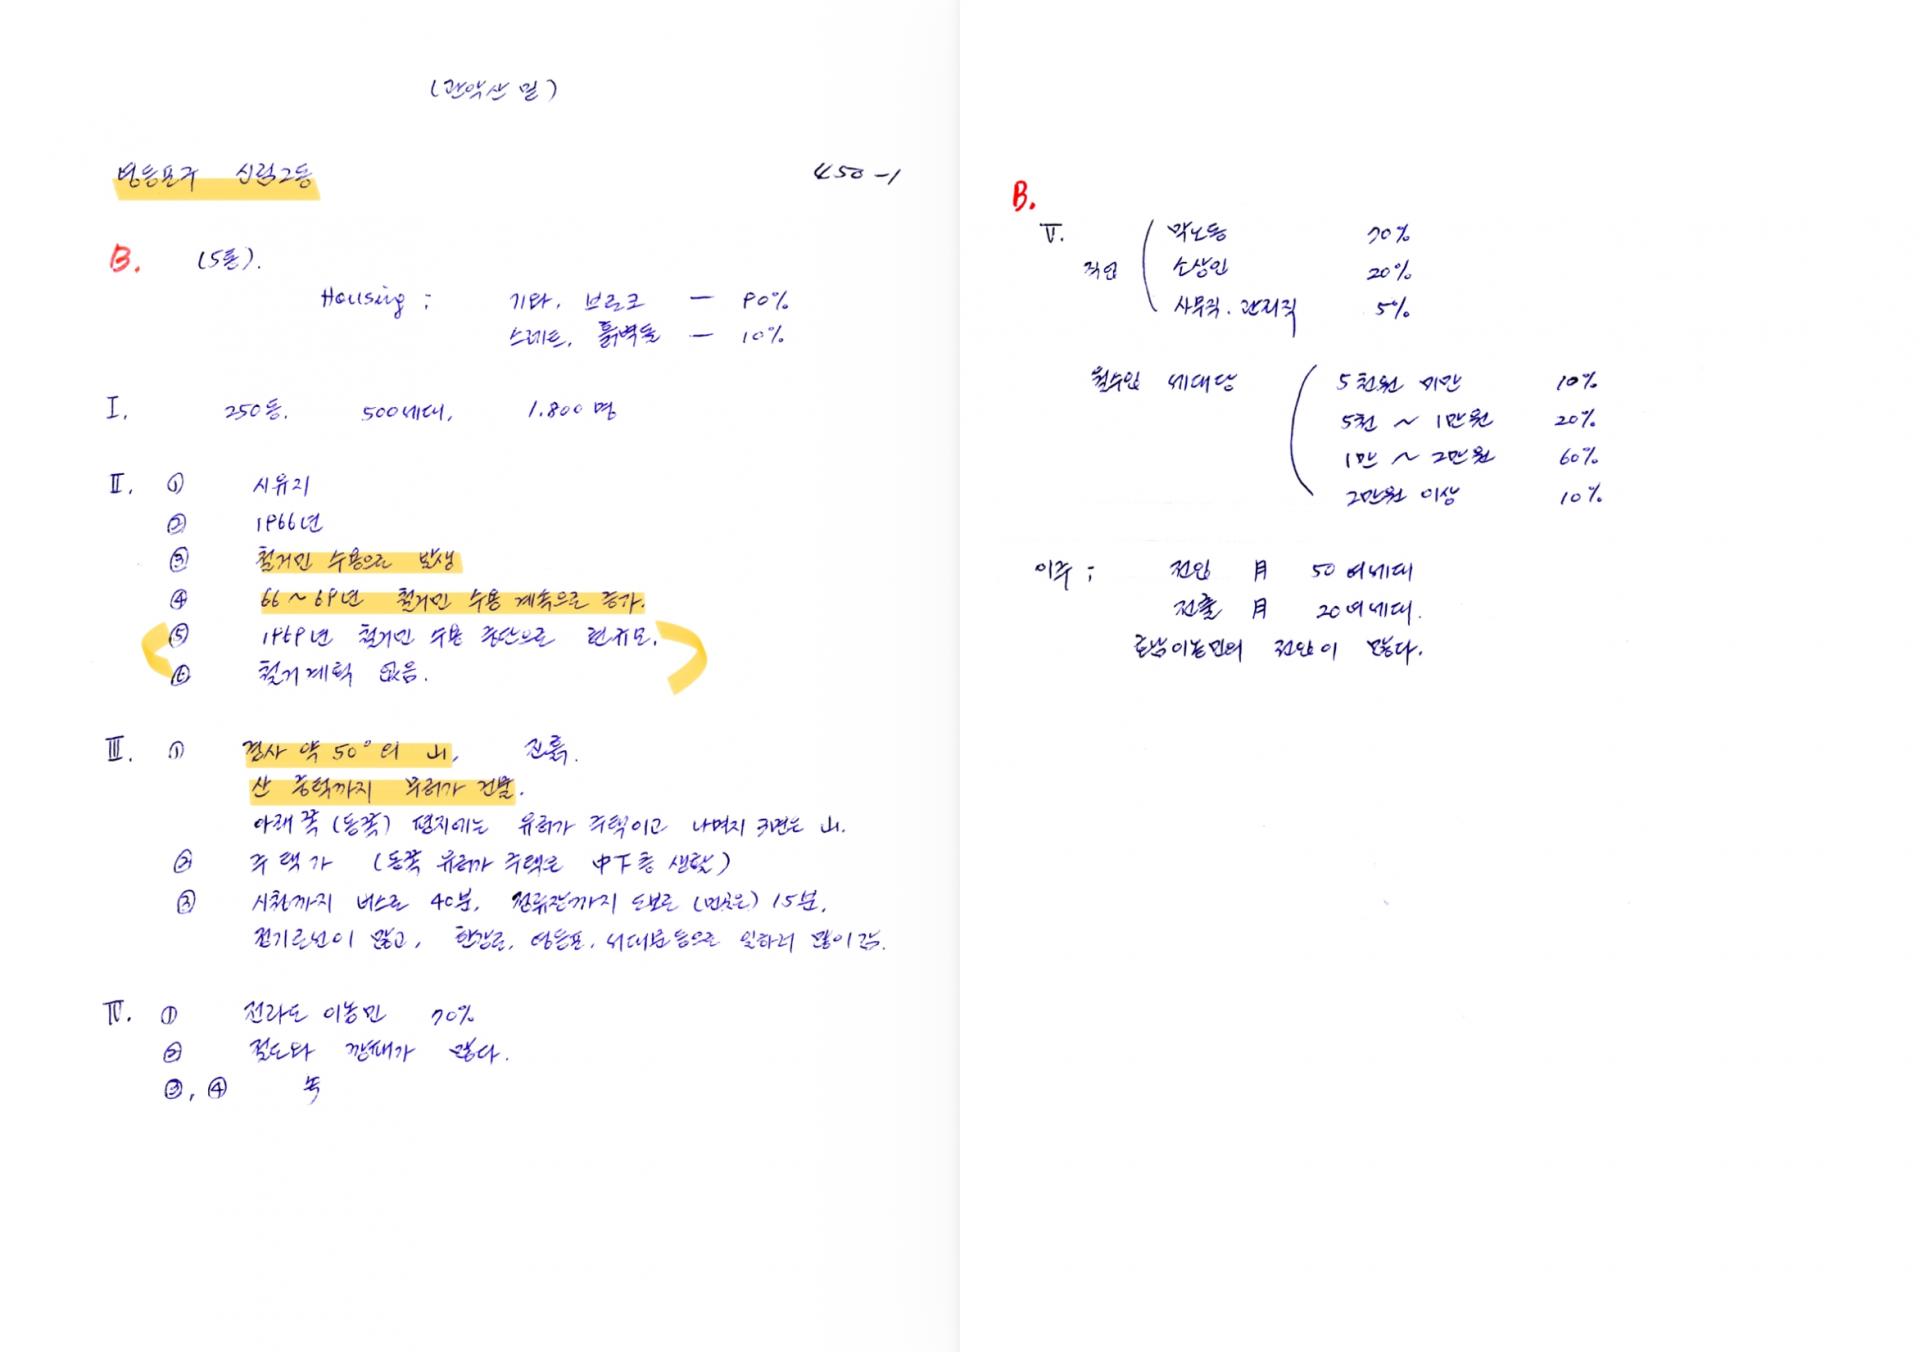 (관악산 밑)
영등포구 신림2동 450-1
B. (5통).
Housing ; 기와, 브로크 — 90%
스레트, 흙벽돌 — 10%
I. 250동. 500세대, 1.800명
II. ① 시유지
② 1966년
③ 철거민 수용으로 발생
④ 66~69년 철거민 수용 계속으로 증가.
⑤ 1969년 철거민 수용 중단으로 현규모.
⑥ 철거계획 없음.
III. ① 경사 약 50°의 山, 진흙.
산 중턱까지 무허가 건물.
아래쪽(동쪽) 평지에는 유허가 주택이고 나머지 3면은 山.
② 주택가 (동쪽 유허가 주택은 中下층 생활)
③ 시청까지 버스로 40분, 정류장까지 도보로 15분,
전기곤선이 많고, 한강로, 영등포, 서대문등으로 일하러 많이 감.
IV. ① 전라도 이농민 70%
② 절도와 깡패가 많다.
③, ④ 녹
B.
V. 직업 막노동 70%
소상인 20%
사무직. 관리직 5%
월수입 세대당 5천원 미만 10%
5천 ~ 1만원 20%
1만 ~ 2만원 60%
2만원 이상 10%
이주 ; 전입 月 50여세대
전출 月 20여세대.
호남이농민의 전입이 많다.